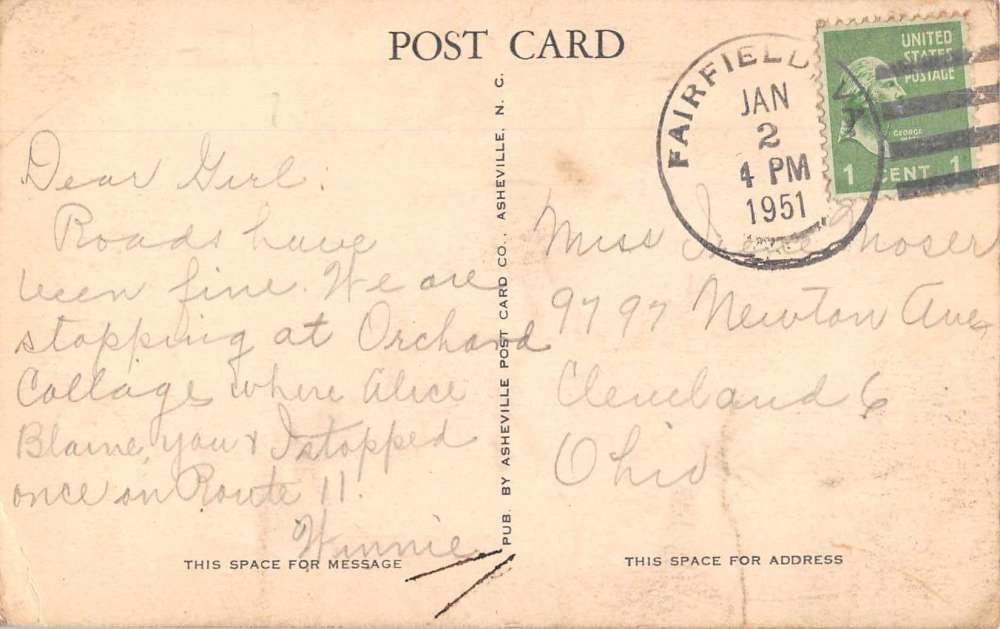 POST CARD
FAIRFIELD, VA
JAN
2
4 PM
1951
UNITED
STATES
POSTAGE
GEORGE
1 CENT 1
Dear Girl:
Roads have
been fine. We are
stopping at Orchard
Cottage where Alice
Blaine, you & I stopped
once on Route 11.
Winnie
Miss Moser
9797 Newton Ave
Cleveland 6
Ohio
PUB. BY ASHEVILLE POST CARD CO., ASHEVILLE, N. C.
THIS SPACE FOR MESSAGE
THIS SPACE FOR ADDRESS